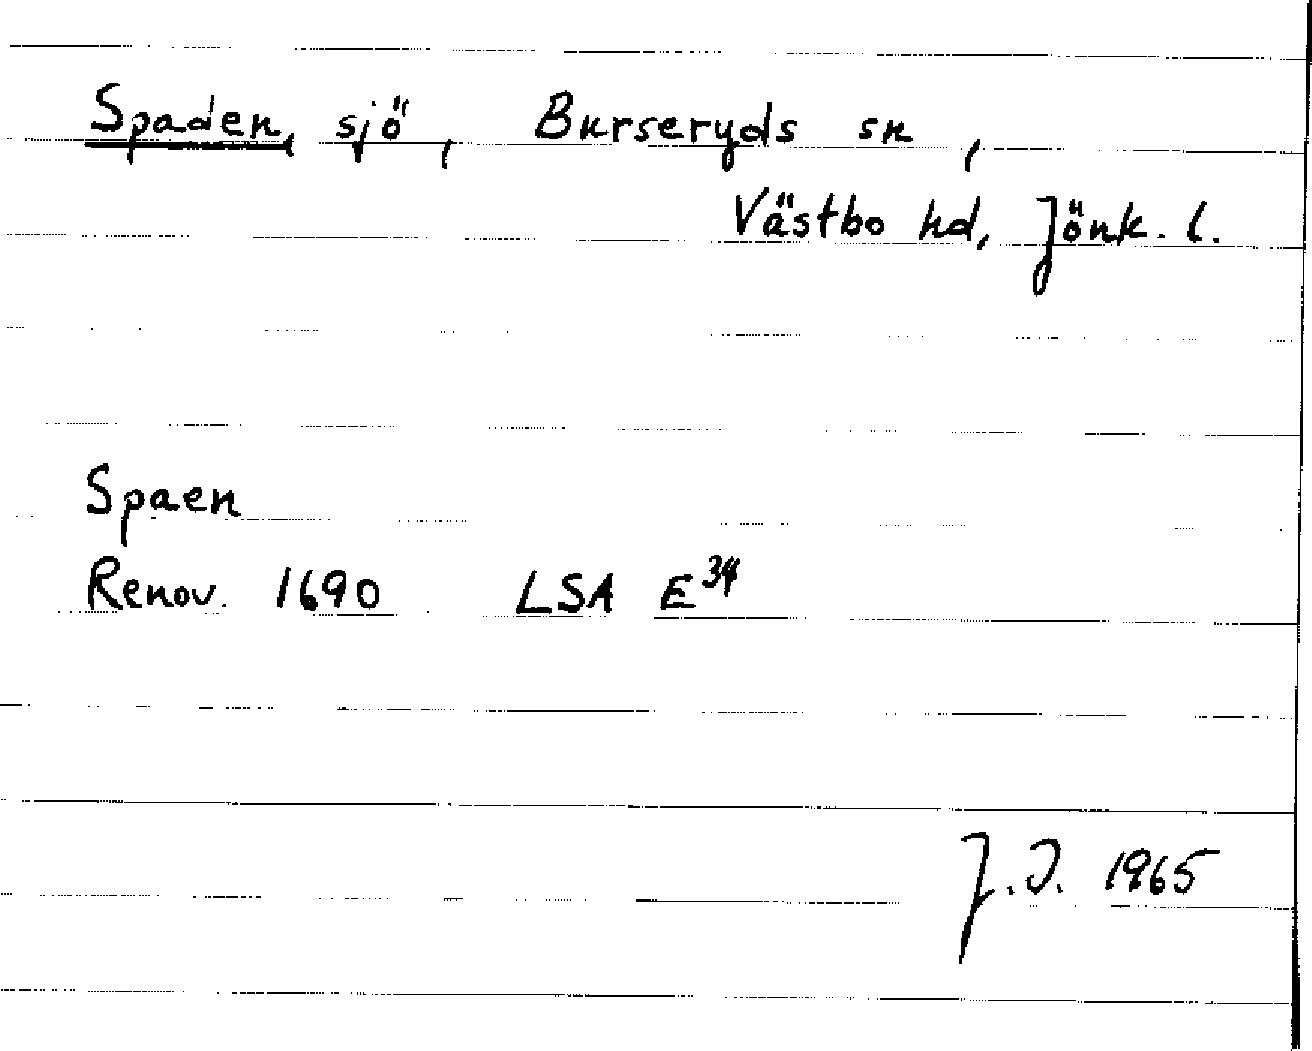 Spaden, sjö, Burseryds sn,
Västbo hd, Jönk. l.
Spaen
Renov. 1690 LSA E³⁴
J.I. 1965